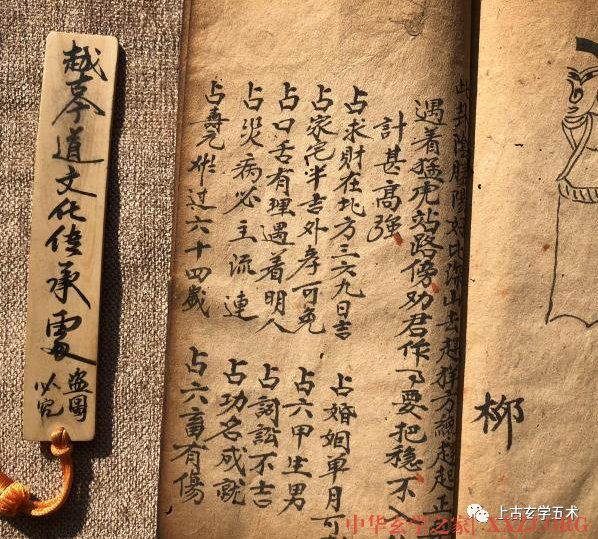 越
道文化传承處
盗圖
必究
柳
此卦陰勝陽好比深山去赶羊方纔赶赶正
遇着猛虎站路傍劝君作事要把穩不入
計甚高強
占求財在北方三六九日吉
占家宅半吉外孝可免
占口舌有理遇着明人
占災病必主流連
占壽元难过六十四歲
占婚姻单月可
占六甲生男
占詞訟不吉
占功名成就
占六畜有傷
上古玄学五术
中华玄学之家| XXZJ.ORG